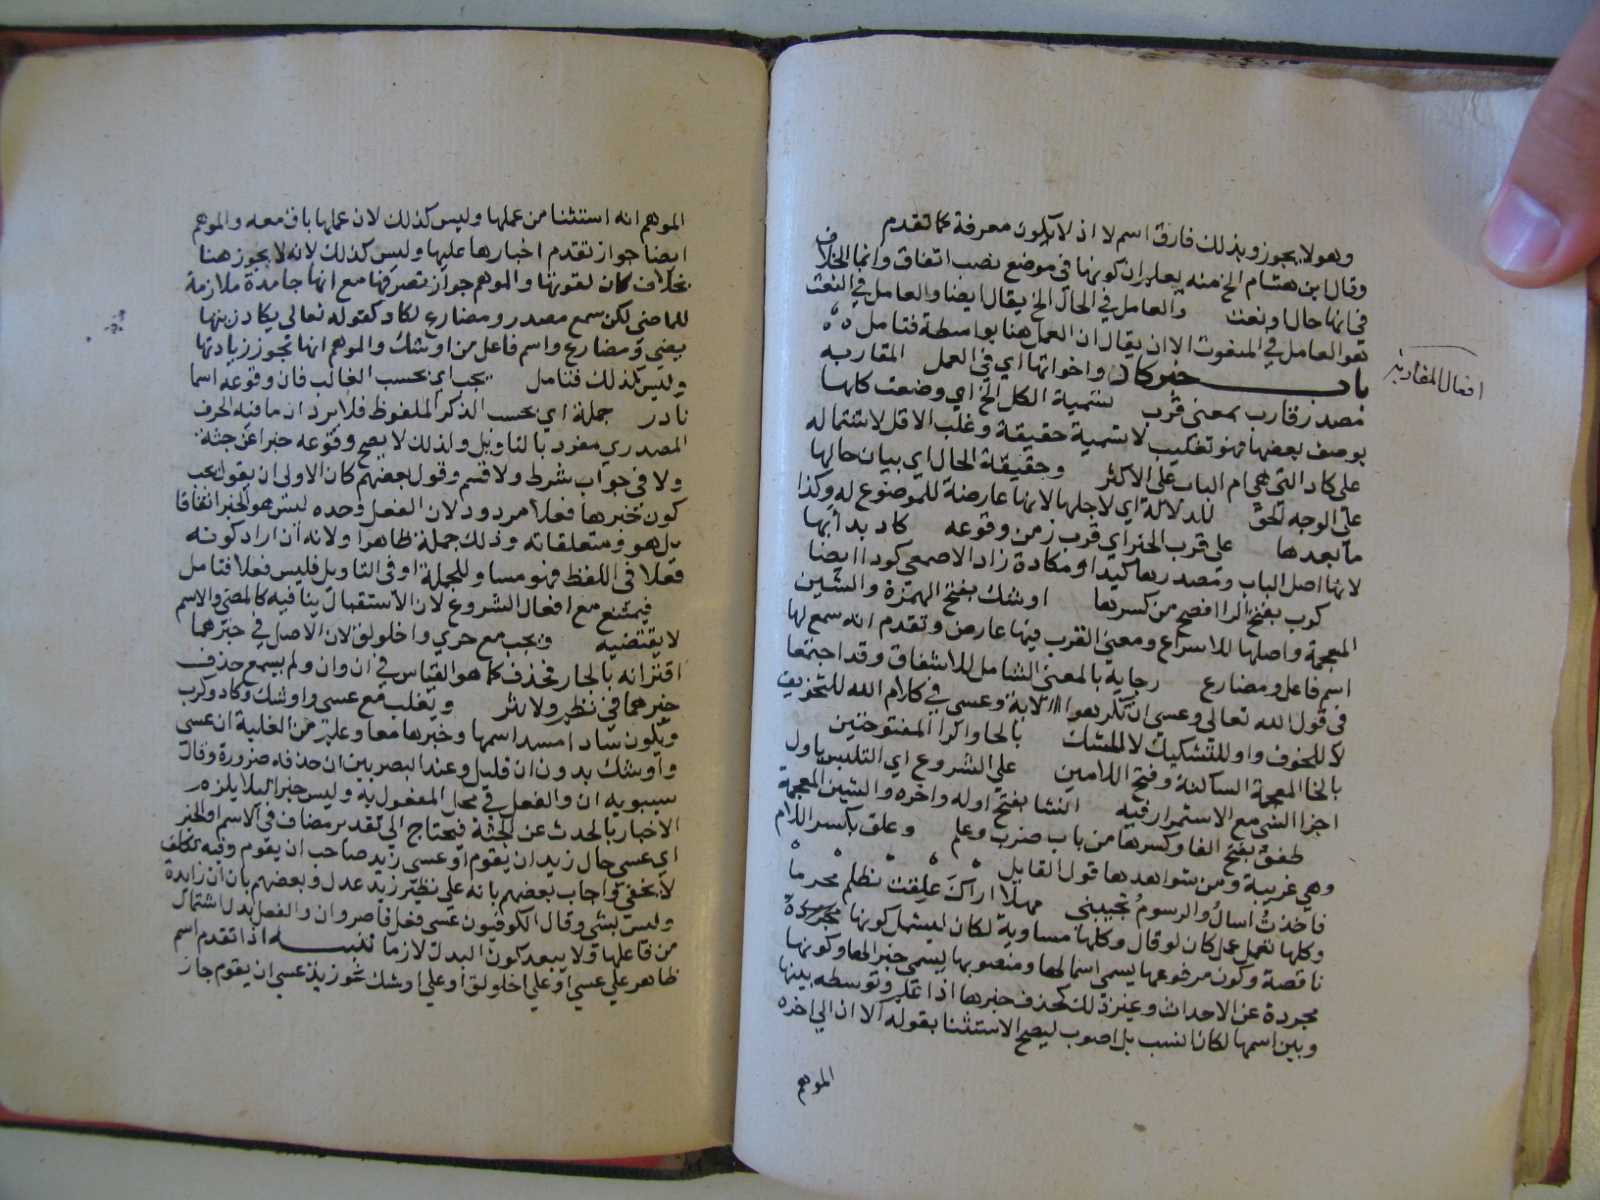 وهو لا يجوز وبذلك فارق اسم لا اذ لا يكون معرفة كما تقدم
وقال ابن هشام الخ منه يعلم ان كونها في موضع نصب اتفاق وانما الخلاف
في انها حال او نعت والعامل في الحال الخ يقال ايضا والعامل في النعت
هو العامل في المنعوت الا ان يقال ان العمل هنا بواسطة فتامل
افعال المقاربة
باب خبر كاد واخواتها اي في العمل المقاربه
مصدر قارب بمعنى قرب تسمية الكل الخ اي وضعت كلها
بوصف بعضها فهو تغليب لا تسمية حقيقة وغلب الاقل لاشتماله
على كاد التي هي ام الباب على الاكثر وحقيقة الحال اي بيان حالها
على الوجه الحق للدلالة اي لاجلها لانها عارضة للموضوع له وكذا
ما بعدها على قرب الخبر اي قرب زمن وقوعه كاد بدا بها
لانها اصل الباب ومصدرها كيدا ومكادة زاد الاصمعي كودا ايضا
كرب بفتح الرا افصح من كسرها اوشك بفتح الهمزة والشين
المعجمة واصلها للاسراع ومعنى القرب فيها عارض وتقدم انه سمع لها
اسم فاعل ومضارع رجايه بالمعنى الشامل للاشفاق وقد اجتمعا
في قول الله تعالى وعسى ان تكرهوا الاية وعسى في كلام الله للتخويف
لا للخوف واو للتشكيك لا للشك بالحا والرا المفتوحتين
بالخا المعجمة الساكنة وفتح اللامين على الشروع اي التلبس باول
اجزا الشي مع الاستمرار فيه انشا بفتح اوله واخره والشين المعجمة
طفق بفتح الفا وكسرها من باب ضرب وعلم وعلق بكسر اللام
وهي غريبة ومن شواهدها قول القايل
فاخذت اسال والرسوم تجيبني مهلا اراك علقت تظلم محرما
وكلها تعمل عمل كان لو قال وكلها مساوية لكان ليشمل كونها
ناقصة وكون مرفوعها يسمى اسما لها ومنصوبها يسمى خبر لها وكونها
مجردة عن الاحداث وغير ذلك كحذف خبرها اذا علم وتوسطه بينها
وبين اسمها لكان انسب بل اصوب ليصح الاستثنا بقوله الا ان الى اخره
الموهم
الموهم انه استثنا من عملها وليس كذلك لان عملها باق معه والموهم
ايضا جواز تقدم اخبارها عليها وليس كذلك لانه لا يجوز هنا
بخلاف كان لقوتها والموهم جواز تصرفها مع انها جامدة ملازمة
للماضي لكن سمع مصدر ومضارع لكاد كقوله تعالى يكاد زيتها
يضي ومضارع واسم فاعل من اوشك والموهم انها تجوز زيادتها
وليس كذلك فتامل يجب اي بحسب الغالب فان وقوعه اسما
نادر جملة اي بحسب الذكر الملفوظ فلا يرد ان ما فيه الحرف
المصدري مفرد بالتاويل ولذلك لا يصح وقوعه خبرا عن جثة
ولا في جواب شرط ولا قسم وقول بعضهم كان الاولى ان يقول يجب
كون خبرها فعلا مردود لان الفعل وحده ليس هو الخبر اتفاقا
بل هو ومتعلقاته وذلك جملة ظاهرا ولانه ان اراد كونه
فعلا في اللفظ فهو مساو للجملة او في التاويل فليس فعلا فتامل
فيمتنع مع افعال الشروع لان الاستقبال ينافيه كالمضي والاسم
لا يقتضيه ويجب مع حرى واخلولق لان الاصل في خبرهما
اقترانه بالجار فحذف كما هو القياس في ان وان ولم يسمع حذف
خبرهما في نظم ولا نثر ويغلب مع عسى واوشك وكاد وكرب
ويكون سادا مسد اسمها وخبرها معا وعلم من الغلبة ان عسى
واوشك بدون ان قليل وعند البصريين ان حذفه ضرورة وقال
سيبويه ان والفعل في محل المفعول به وليس خبرا ليلا يلزم
الاخبار بالحدث عن الجثة فيحتاج الى تقدير مضاف في الاسم او الخبر
اي عسى حال زيد ان يقوم او عسى زيد صاحب ان يقوم وفيه تكلف
لا يخفى واجاب بعضهم بانه على نظير زيد عدل وبعضهم بان ان زايدة
وليس بشي وقال الكوفيون عسى فعل قاصر وان والفعل بدل اشتمال
من فاعلها ولا يبعد كون البدل لازما تنبيه اذا تقدم اسم
ظاهر على عسى او على اخلولق او على اوشك نحو زيد عسى ان يقوم جاز